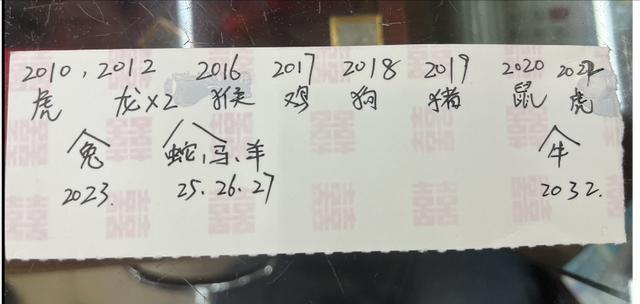 2010, 2012 2016 2017 2018 2019 2020 2022
虎 龙x2 猴 鸡 狗 猪 鼠 虎
兔 蛇、马、羊 牛
2023. 25. 26. 27 2032.